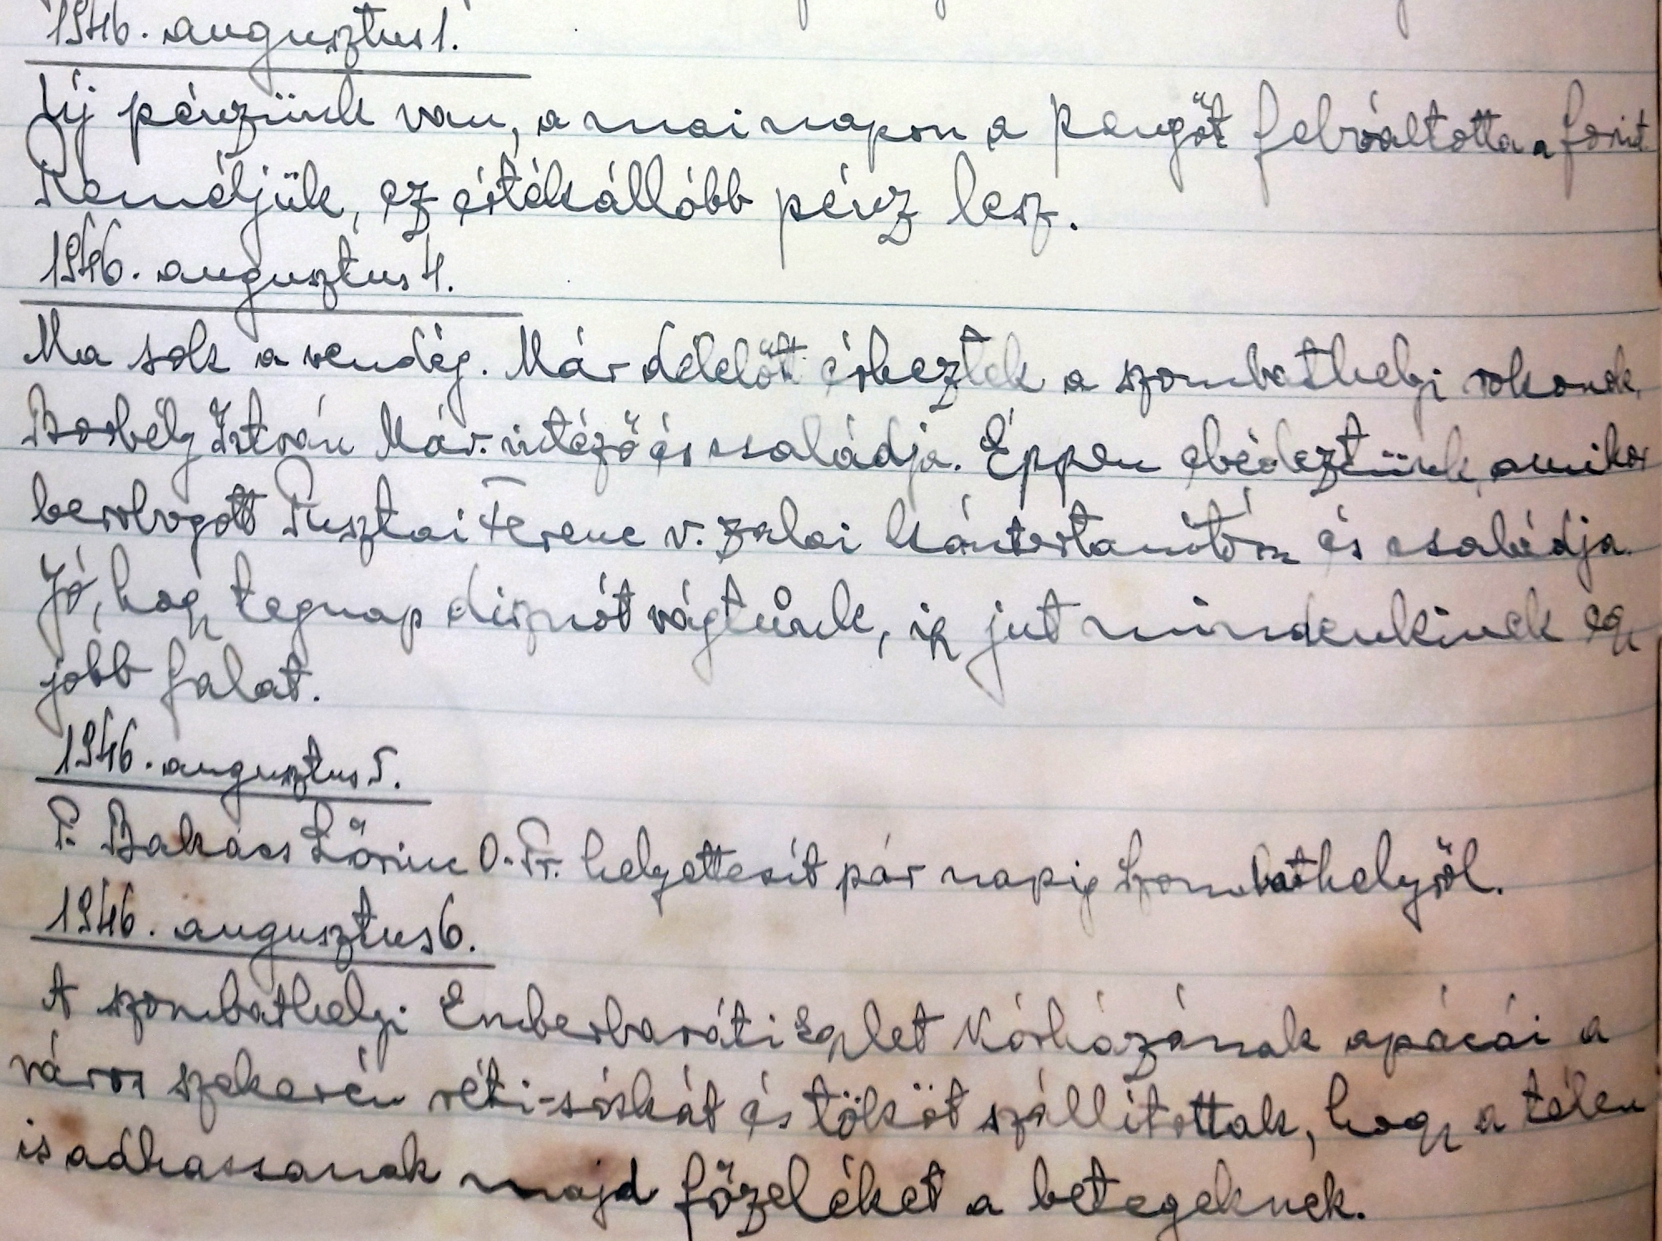 1946. augusztus 1.
Új pénzünk van, a mai napon a Pengőt felváltotta a forint.
Reméljük, ez értékállóbb pénz lesz.
1946. augusztus 4.
Ma sok a vendég. Már délelőtt érkeztek a szombathelyi rokonok,
Borbély István Máv. intéző és családja. Éppen ebédeztünk, amikor
berobogott Pusztai Ferenc v. zalai kántortanítóm és családja.
Jó, hogy tegnap disznót vágtunk, így jut mindenkinek egy
jobb falat.
1946. augusztus 5.
P. Bakács Lőrinc O. Fr. helyettesít pár napig Szombathelyről.
1946. augusztus 6.
A szombathelyi Emberbaráti Egylet Kórházának apácái a
város szekerén réti-sóskát és tököt szállítottak, hogy a télen
is adhassanak majd főzeléket a betegeknek.